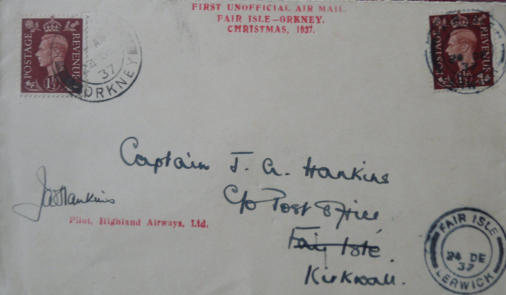 FIRST UNOFFICIAL AIR MAIL.
FAIR ISLE-ORKNEY.
CHRISTMAS, 1937.
POSTAGE REVENUE
1½D
37
ORKNEY
POSTAGE REVENUE
1½
Captain J. A. Hankins
c/o Post Office
Fair Isle
Kirkwall.
JAHankins
Pilot, Highland Airways, Ltd.
FAIR ISLE
24 DE
37
LERWICK